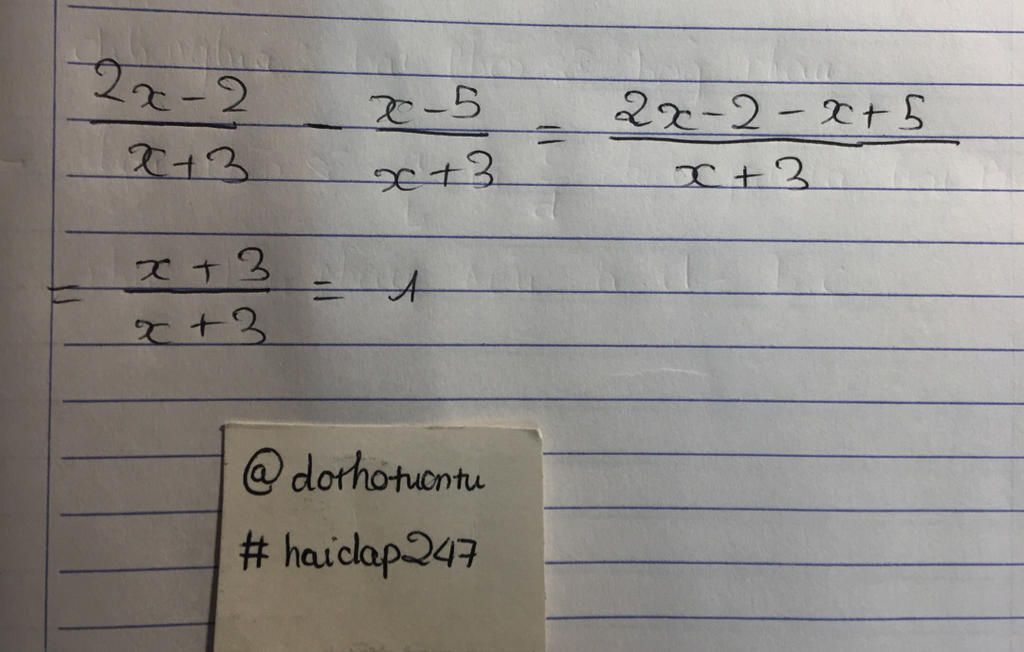 \frac{2x-2}{x+3} - \frac{x-5}{x+3} = \frac{2x-2-x+5}{x+3}
= \frac{x+3}{x+3} = 1
@dorhotuontu
# haiclap247